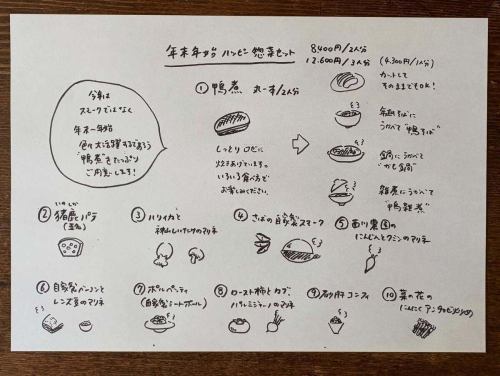 年末年始 ハンピン 惣菜セット
8400円/2人分
12.600円/3人分 (4.300円/1人分)
今年は
スモークではなく
年末〜年始
色々大活躍するであろう
"鴨煮"をたっぷり
ご用意します!
① 鴨煮 丸一本/2人分
しっとりロゼに
炊きあげています。
いろいろ食べ方で
お楽しみください。
カットして
そのままでもOK!
年越しそばに
うかべて"鴨そば"
お鍋にうかべて
"かも鍋"
雑煮にうかべて
"鴨雑煮"
② いのしか
猪鹿パテ
③ ハリイカと
神山しいたけのマリネ
④ さばの自家製スモーク
⑤ 西川農園の
にんじんとクミンのマリネ
⑥ 自家製ベーコンと
レンズ豆のマリネ
⑦ ポルペッティ
(自家製ミートボール)
⑧ ロースト柿とカブ、
パルミジャーノのマリネ
⑨ 砂肝コンフィ
⑩ 菜の花の
にんにくアンチョビ